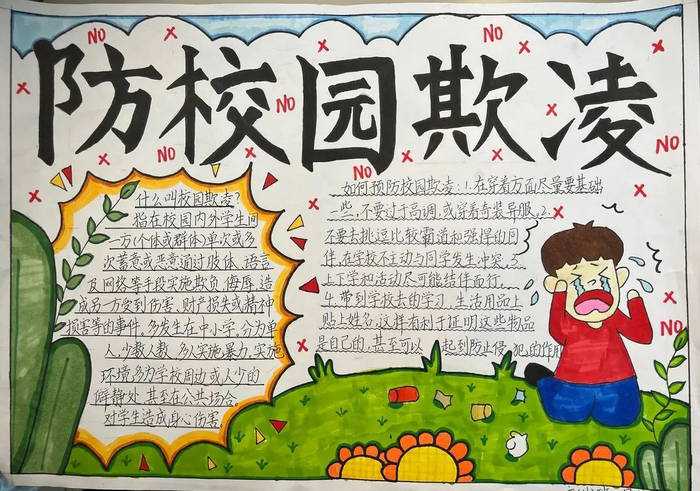 NO
NO
防校园欺凌
NO
NO
NO
NO
NO
NO
什么叫校园欺凌?
指在校园内外学生间
一方(个体或群体)单次或多
次蓄意或恶意通过肢体、语言
及网络等手段实施欺负、侮辱,造
成另一方受到伤害、财产损失或精神
损害等的事件,多发生在中小学,分为单
人、少数人数、多人实施暴力,实施
环境多为学校周边或人少的
僻静处,甚至在公共场合,
对学生造成身心伤害
如何预防校园欺凌:1.在穿着方面尽量要基础
一些,不要过于高调,或穿着奇装异服,2.
不要去挑逗比较霸道和强悍的同
伴,在学校不主动与同学发生冲突,3.
上下学和活动尽可能结伴而行,
4.带到学校去的学习、生活用品上
贴上姓名,这样有利于证明这些物品
是自己的,甚至可以一起到防止侵犯的作用